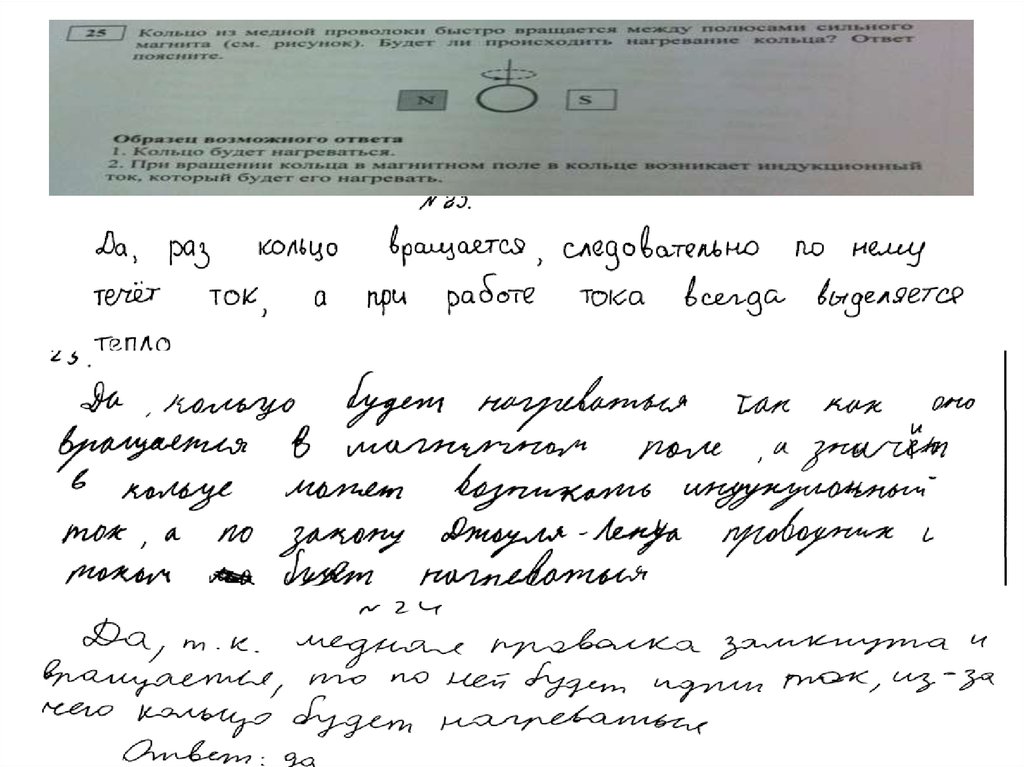 25 Кольцо из медной проволоки быстро вращается между полюсами сильного
магнита (см. рисунок). Будет ли происходить нагревание кольца? Ответ
поясните.
N S
Образец возможного ответа
1. Кольцо будет нагреваться.
2. При вращении кольца в магнитном поле в кольце возникает индукционный
ток, который будет его нагревать.
Да, раз кольцо вращается, следовательно по нему
течёт ток, а при работе тока всегда выделяется
тепло
Да, кольцо будет нагреваться так как оно
вращается в магнитном поле, а значит
в кольце может возникать индукционный
ток, а по закону Джоуля-Ленца проводник с
током будет нагреваться
N 24
Да, т.к. медная проволка замкнута и
вращается, то по ней будет идти ток, из-за
чего кольцо будет нагреваться
Ответ: да